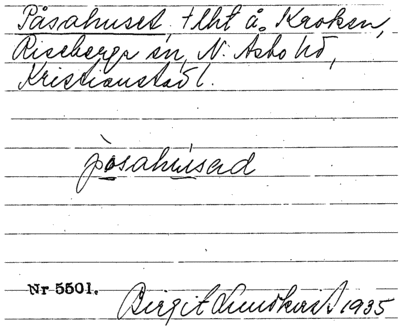 Påsahuset. † lht å. Kroken,
Riseberga sn, N. Åsbo hd,
Kristianstad l.
påsahusəd
Nr 5501.
Birgit Lundkvist 1935